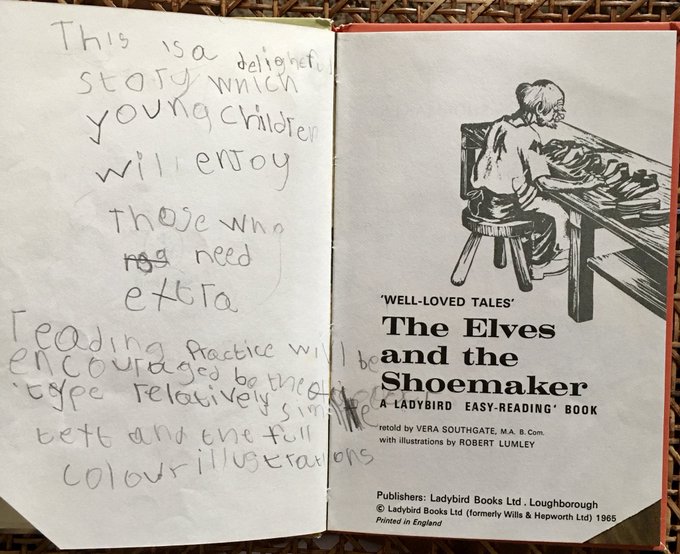 This is a delightful
story which
young children
will enjoy
Those who
need
extra
reading Practice will be
encouraged by the
type relatively simple
text and the full
colour illustrations
'WELL-LOVED TALES'
The Elves
and the
Shoemaker
A LADYBIRD EASY-READING' BOOK
retold by VERA SOUTHGATE, M.A. B.Com.
with illustrations by ROBERT LUMLEY
Publishers: Ladybird Books Ltd . Loughborough
© Ladybird Books Ltd (formerly Wills & Hepworth Ltd) 1965
Printed in England